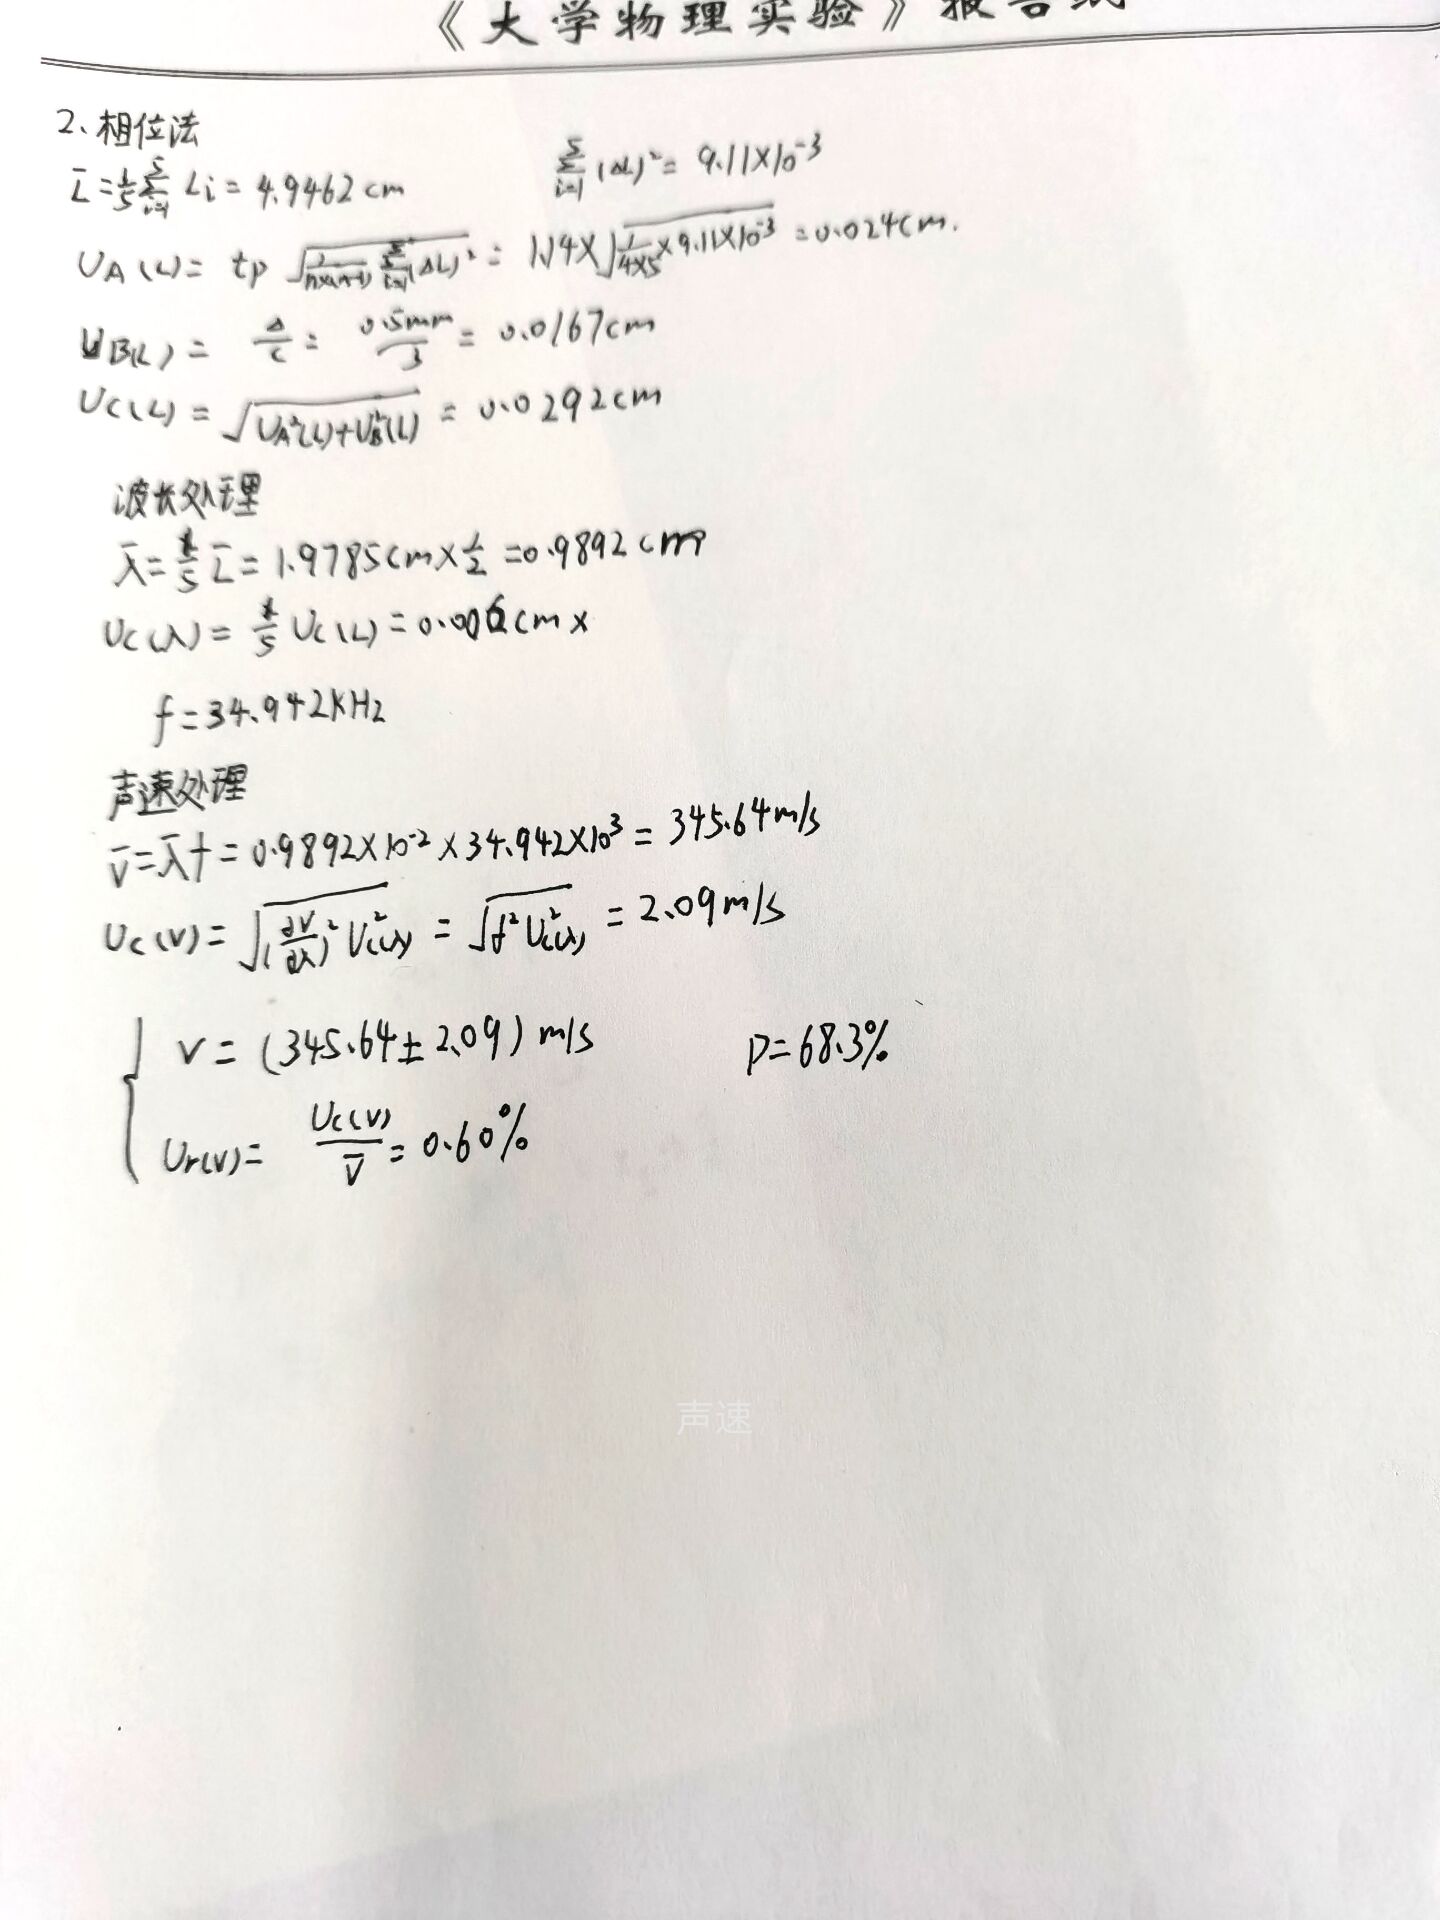 《大学物理实验》报告纸
2、相位法
L̄=1/5 Σ(i=1→5) Li = 4.9462cm    Σ(i=1→5) (ΔL)² = 9.11×10⁻³
UA(L) = tp √(1/(n×(n-1)) Σ(i=1→5) (ΔL)²) = 1.14×√(1/(4×5)×9.11×10⁻³) = 0.024cm.
UB(L) = Δ/C = 0.5mm/3 = 0.0167cm
UC(L) = √(UA²(L)+UB²(L)) = 0.0292cm
波长处理
λ̄ = 1/5 L̄ = 1.9785cm×1/2 = 0.9892cm
UC(λ) = 1/5 UC(L) = 0.006cm×
f=34.942KHz
声速处理
V̄=λ̄f = 0.9892×10⁻²×34.942×10³ = 345.64m/s
UC(V) = √((∂V/∂λ)² UC²(λ)) = √(f² UC²(λ)) = 2.09m/s
V = (345.64±2.09) m/s    P=68.3%
Ur(V) = UC(V)/V̄ = 0.60%
声速